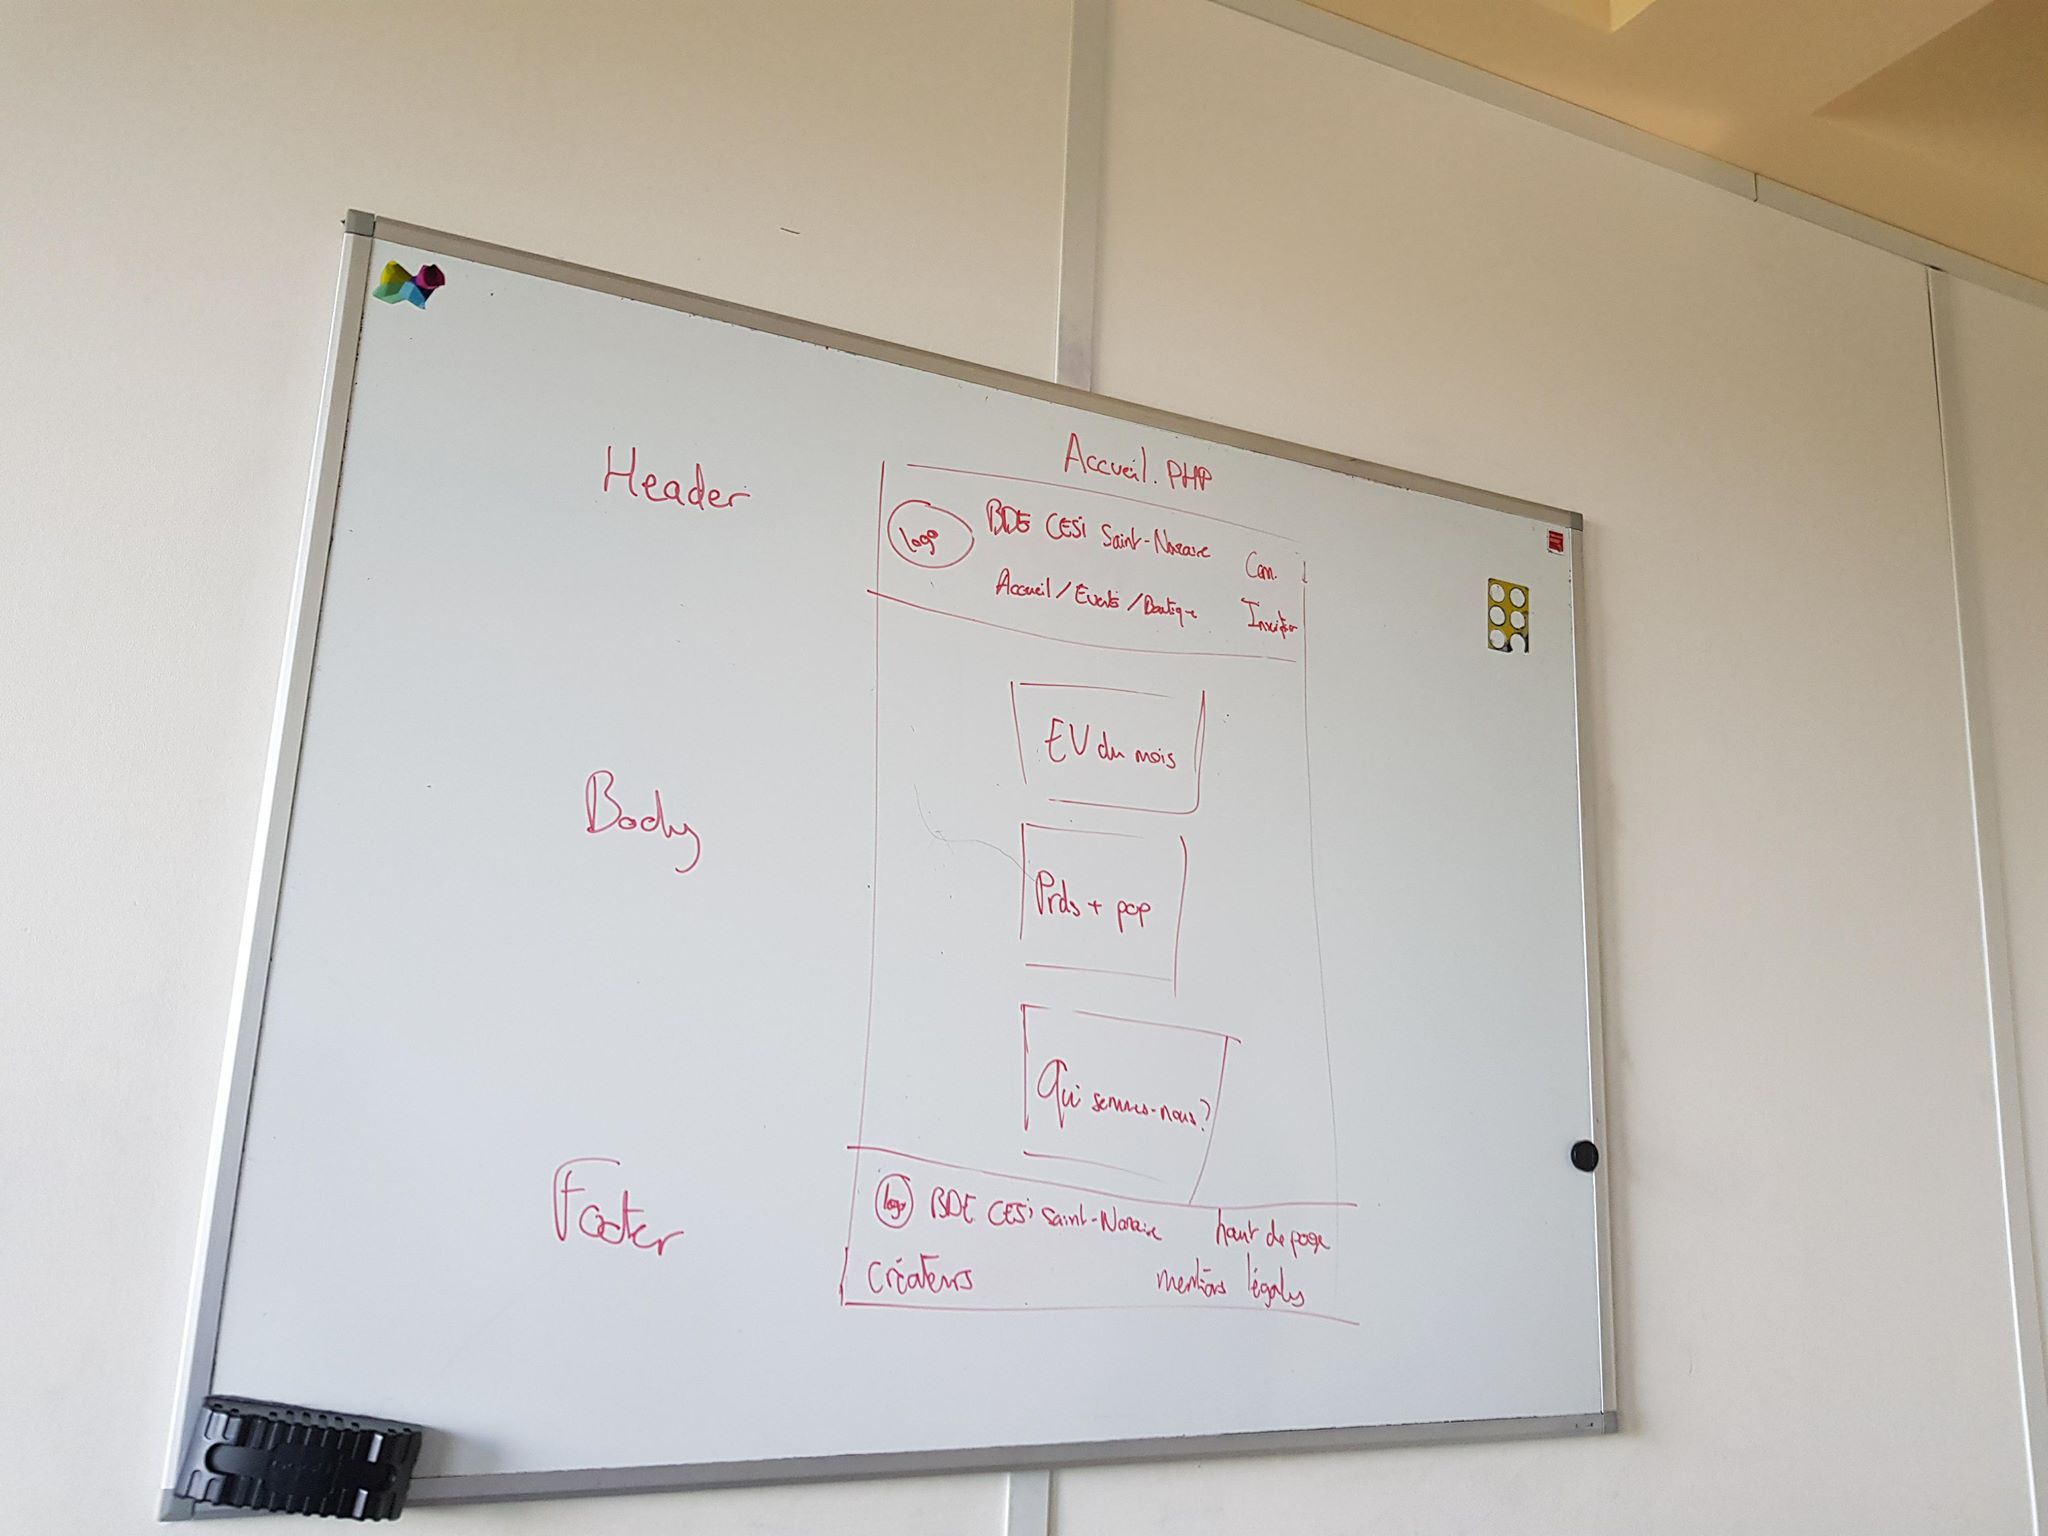 Accueil.PHP
Header
logo
BDE CESi Saint-Nazaire
Con.
Accueil / Events / Boutique
Inscription
Body
EV du mois
Prds + pop
Qui sommes-nous?
Footer
logo BDE CESi Saint-Nazaire
haut de page
Créateurs
mentions légales